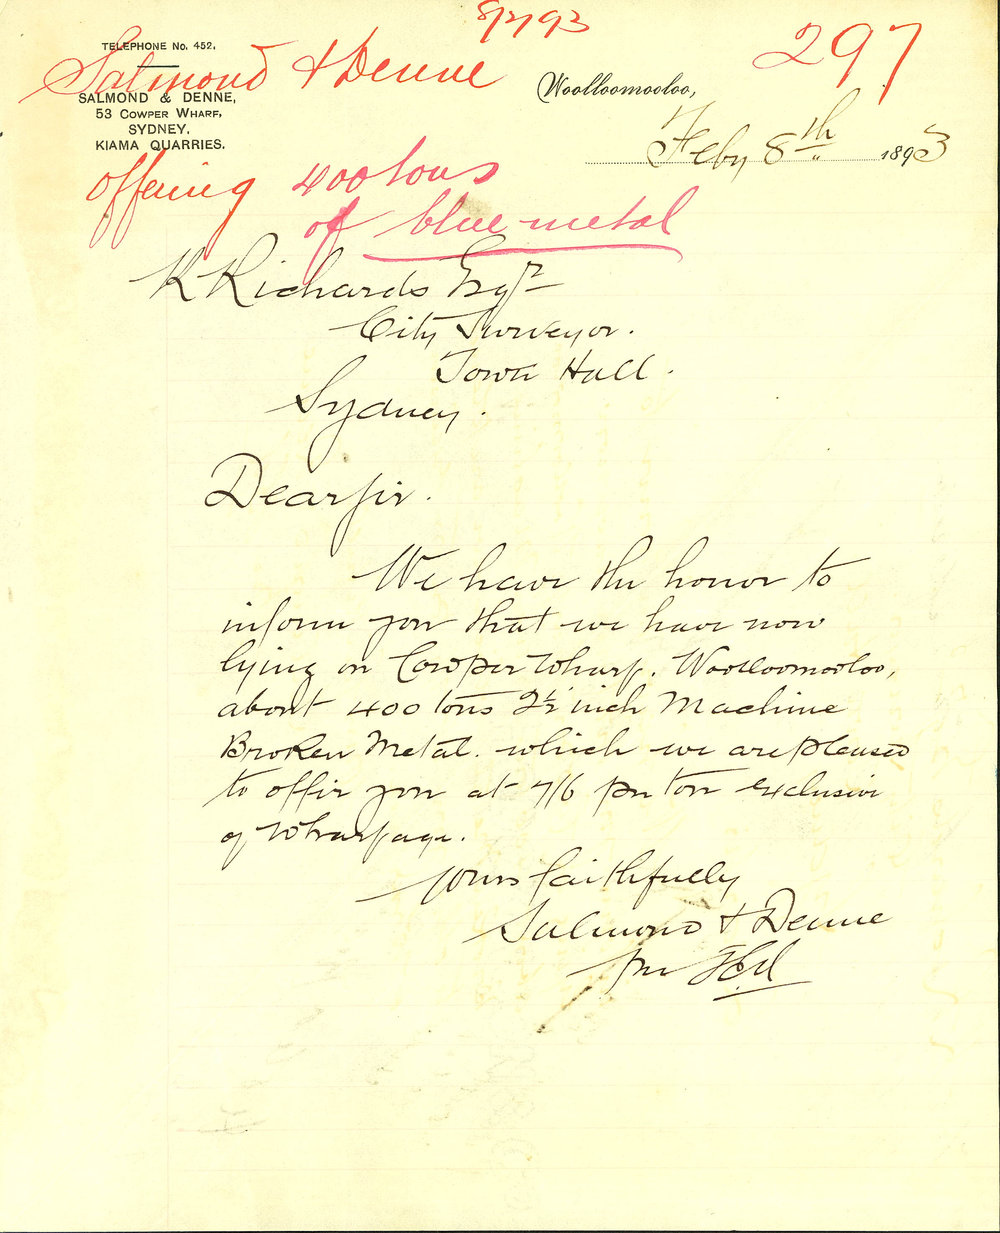 8/2/93
297
TELEPHONE No. 452.
Salmond & Denne
SALMOND & DENNE,
53 COWPER WHARF,
SYDNEY.
KIAMA QUARRIES.
Woolloomooloo,
Feby 8th 1893
offering 400 tons
of blue metal
Richards Esqr
City Surveyor.
Town Hall.
Sydney.
Dear Sir.
We have the honor to
inform you that we have now
lying on Cowper Wharf. Woolloomooloo,
about 400 tons 2½ inch Machine
Broken Metal. which we are pleased
to offer you at 7/6 per ton exclusive
of Wharfage.
Yours faithfully
Salmond & Denne
per